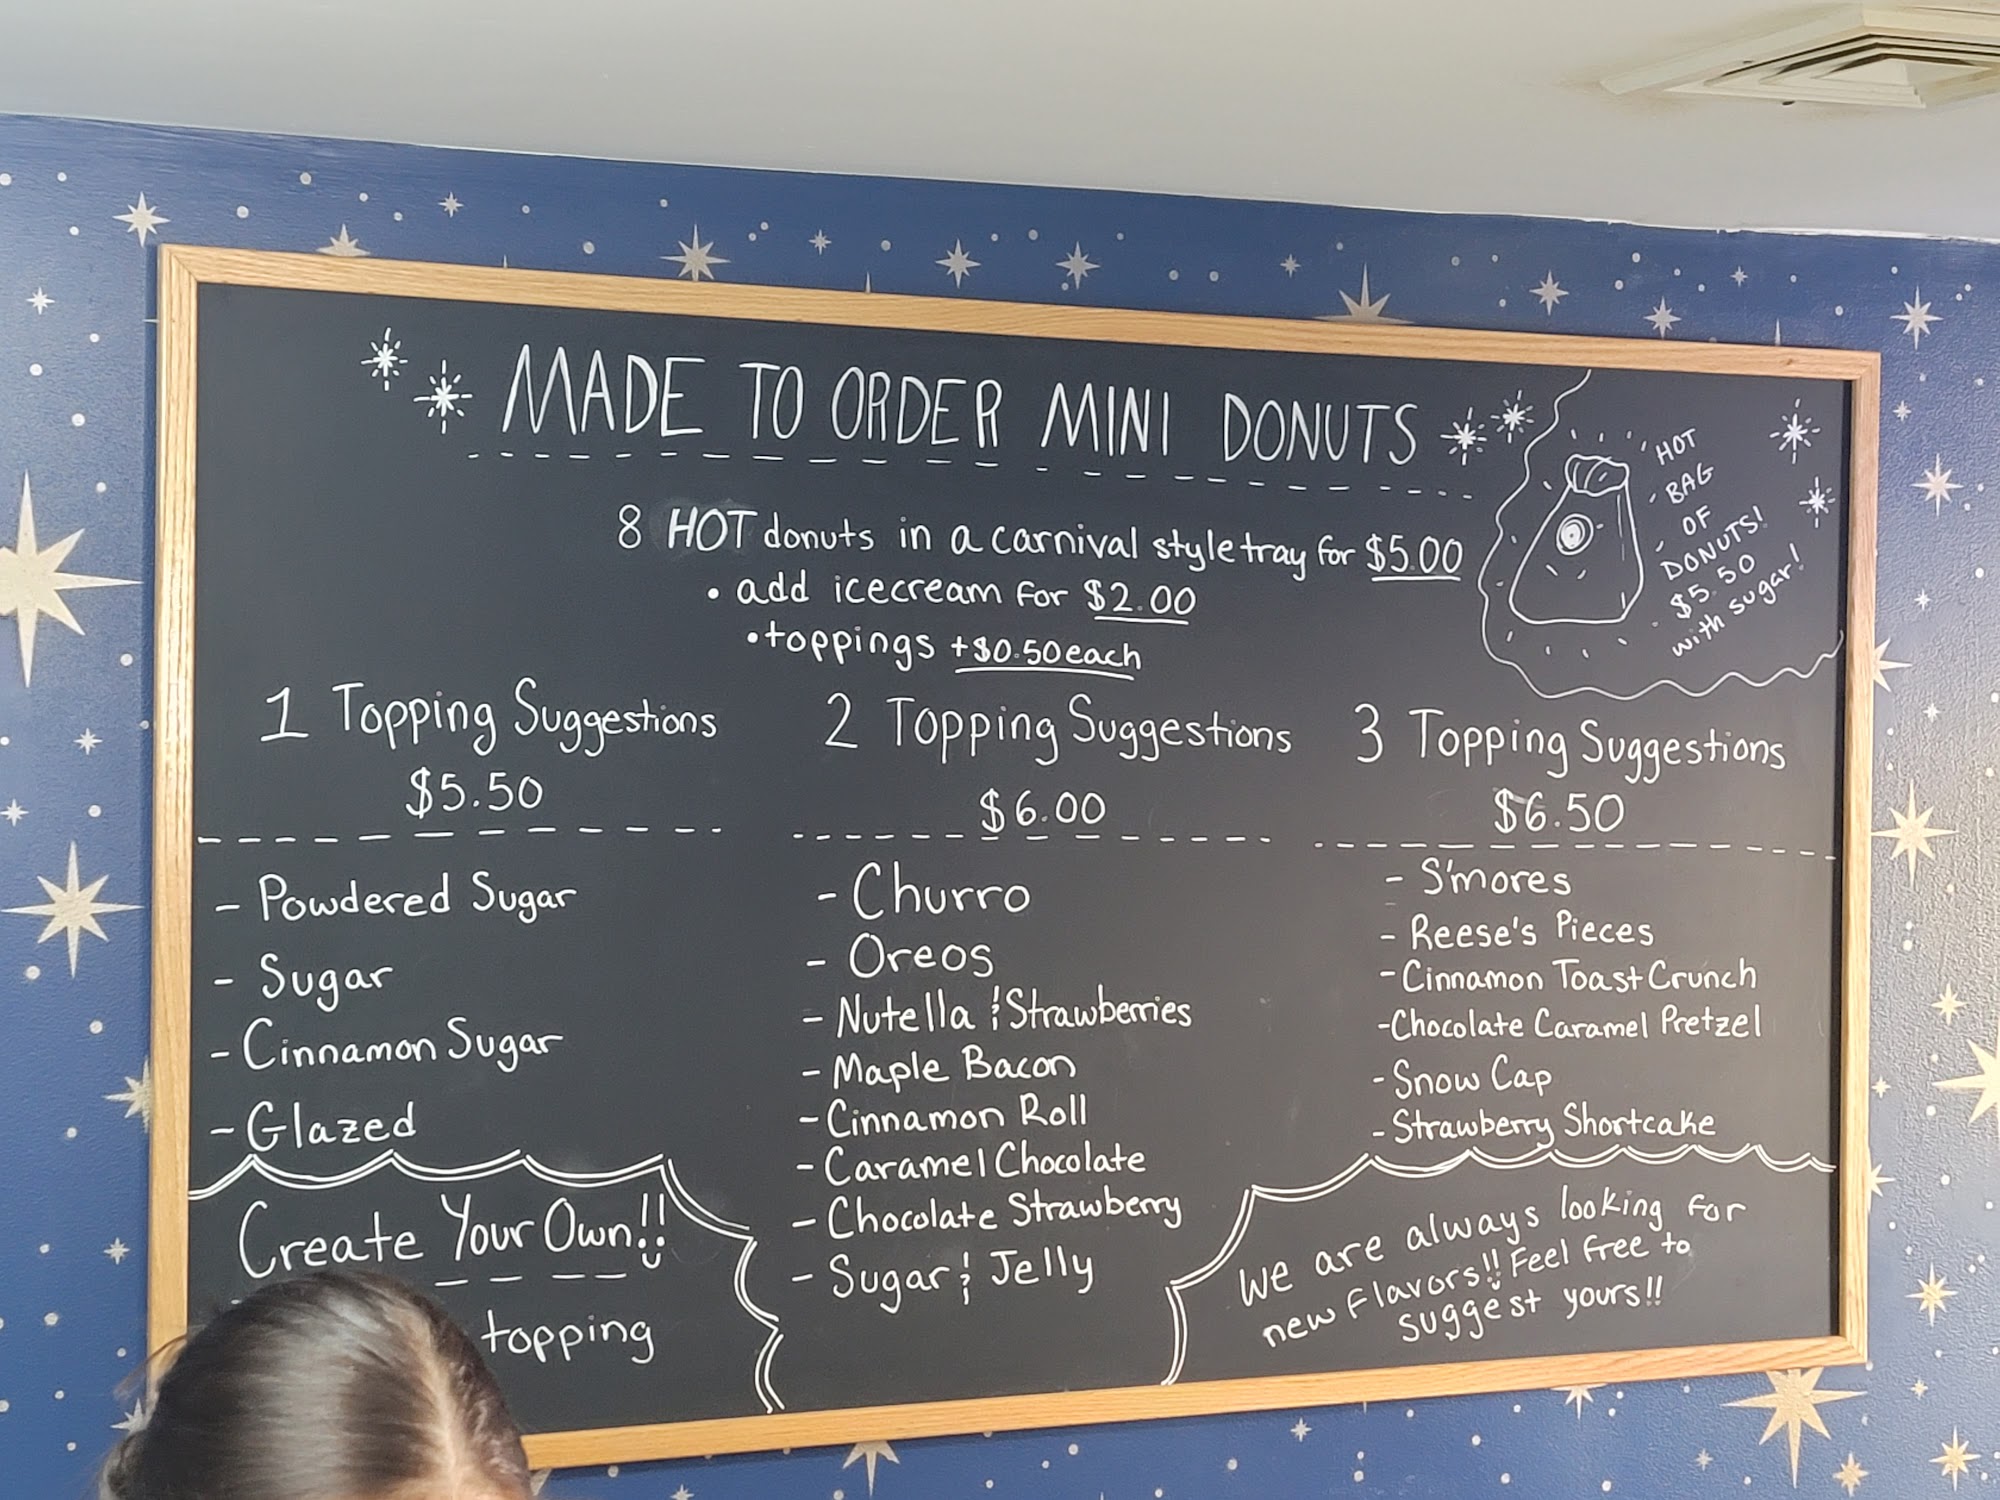 MADE TO ORDER MINI DONUTS
8 HOT donuts in a carnival style tray for $5.00
• add icecream for $2.00
• toppings +$0.50 each
HOT
BAG
OF
DONUTS!
$5.50
with sugar!
1 Topping Suggestions
$5.50
- Powdered Sugar
- Sugar
- Cinnamon Sugar
- Glazed
Create Your Own!!
topping
2 Topping Suggestions
$6.00
- Churro
- Oreos
- Nutella & Strawberries
- Maple Bacon
- Cinnamon Roll
- Caramel Chocolate
- Chocolate Strawberry
- Sugar & Jelly
3 Topping Suggestions
$6.50
- S'mores
- Reese's Pieces
- Cinnamon Toast Crunch
- Chocolate Caramel Pretzel
- Snow Cap
- Strawberry Shortcake
We are always looking for
new flavors!! Feel free to
suggest yours!!